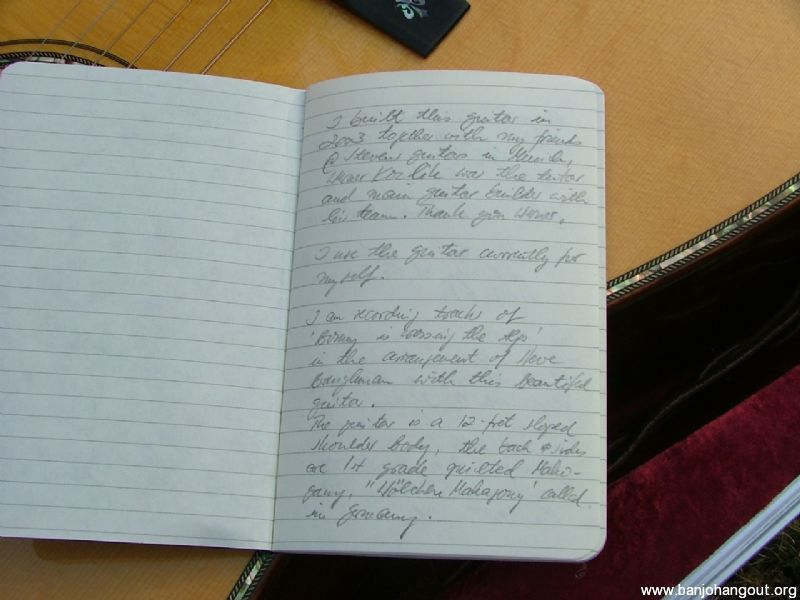 I built this guitar in
2003 together with my friends
@ Stevens guitars in Munich,
Werner Kozlik was the tutor
and main guitar builder with
his team. Thank you Werner.
I use the guitar currently for
myself.
I am recording tracks of
is crossing the Alps'
in the arrangement of Steve
Baughman with this beautiful
guitar.
The guitar is a 12-fret sloped
shoulder body, the back & sides
are 1st grade quilted Maho-
gany, "Wölchen Mahagony" called
in Germany.
www.banjohangout.org